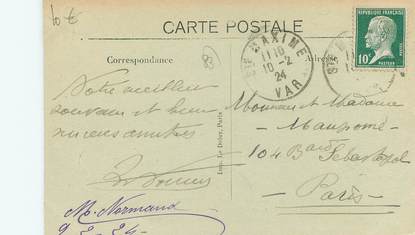 10 €
CARTE POSTALE
Correspondance
83
Adresse
STE MAXIME
11 10
10 - 2
24
VAR
10c
PASTEUR
Notre meilleur
souvenir et bien
sincères amitiés
Imp. Le Deley, Paris
Monsieur et Madame
- Mauprome -
104 Bard Sebastopol
- Paris -
M. Normand
9-2-24-